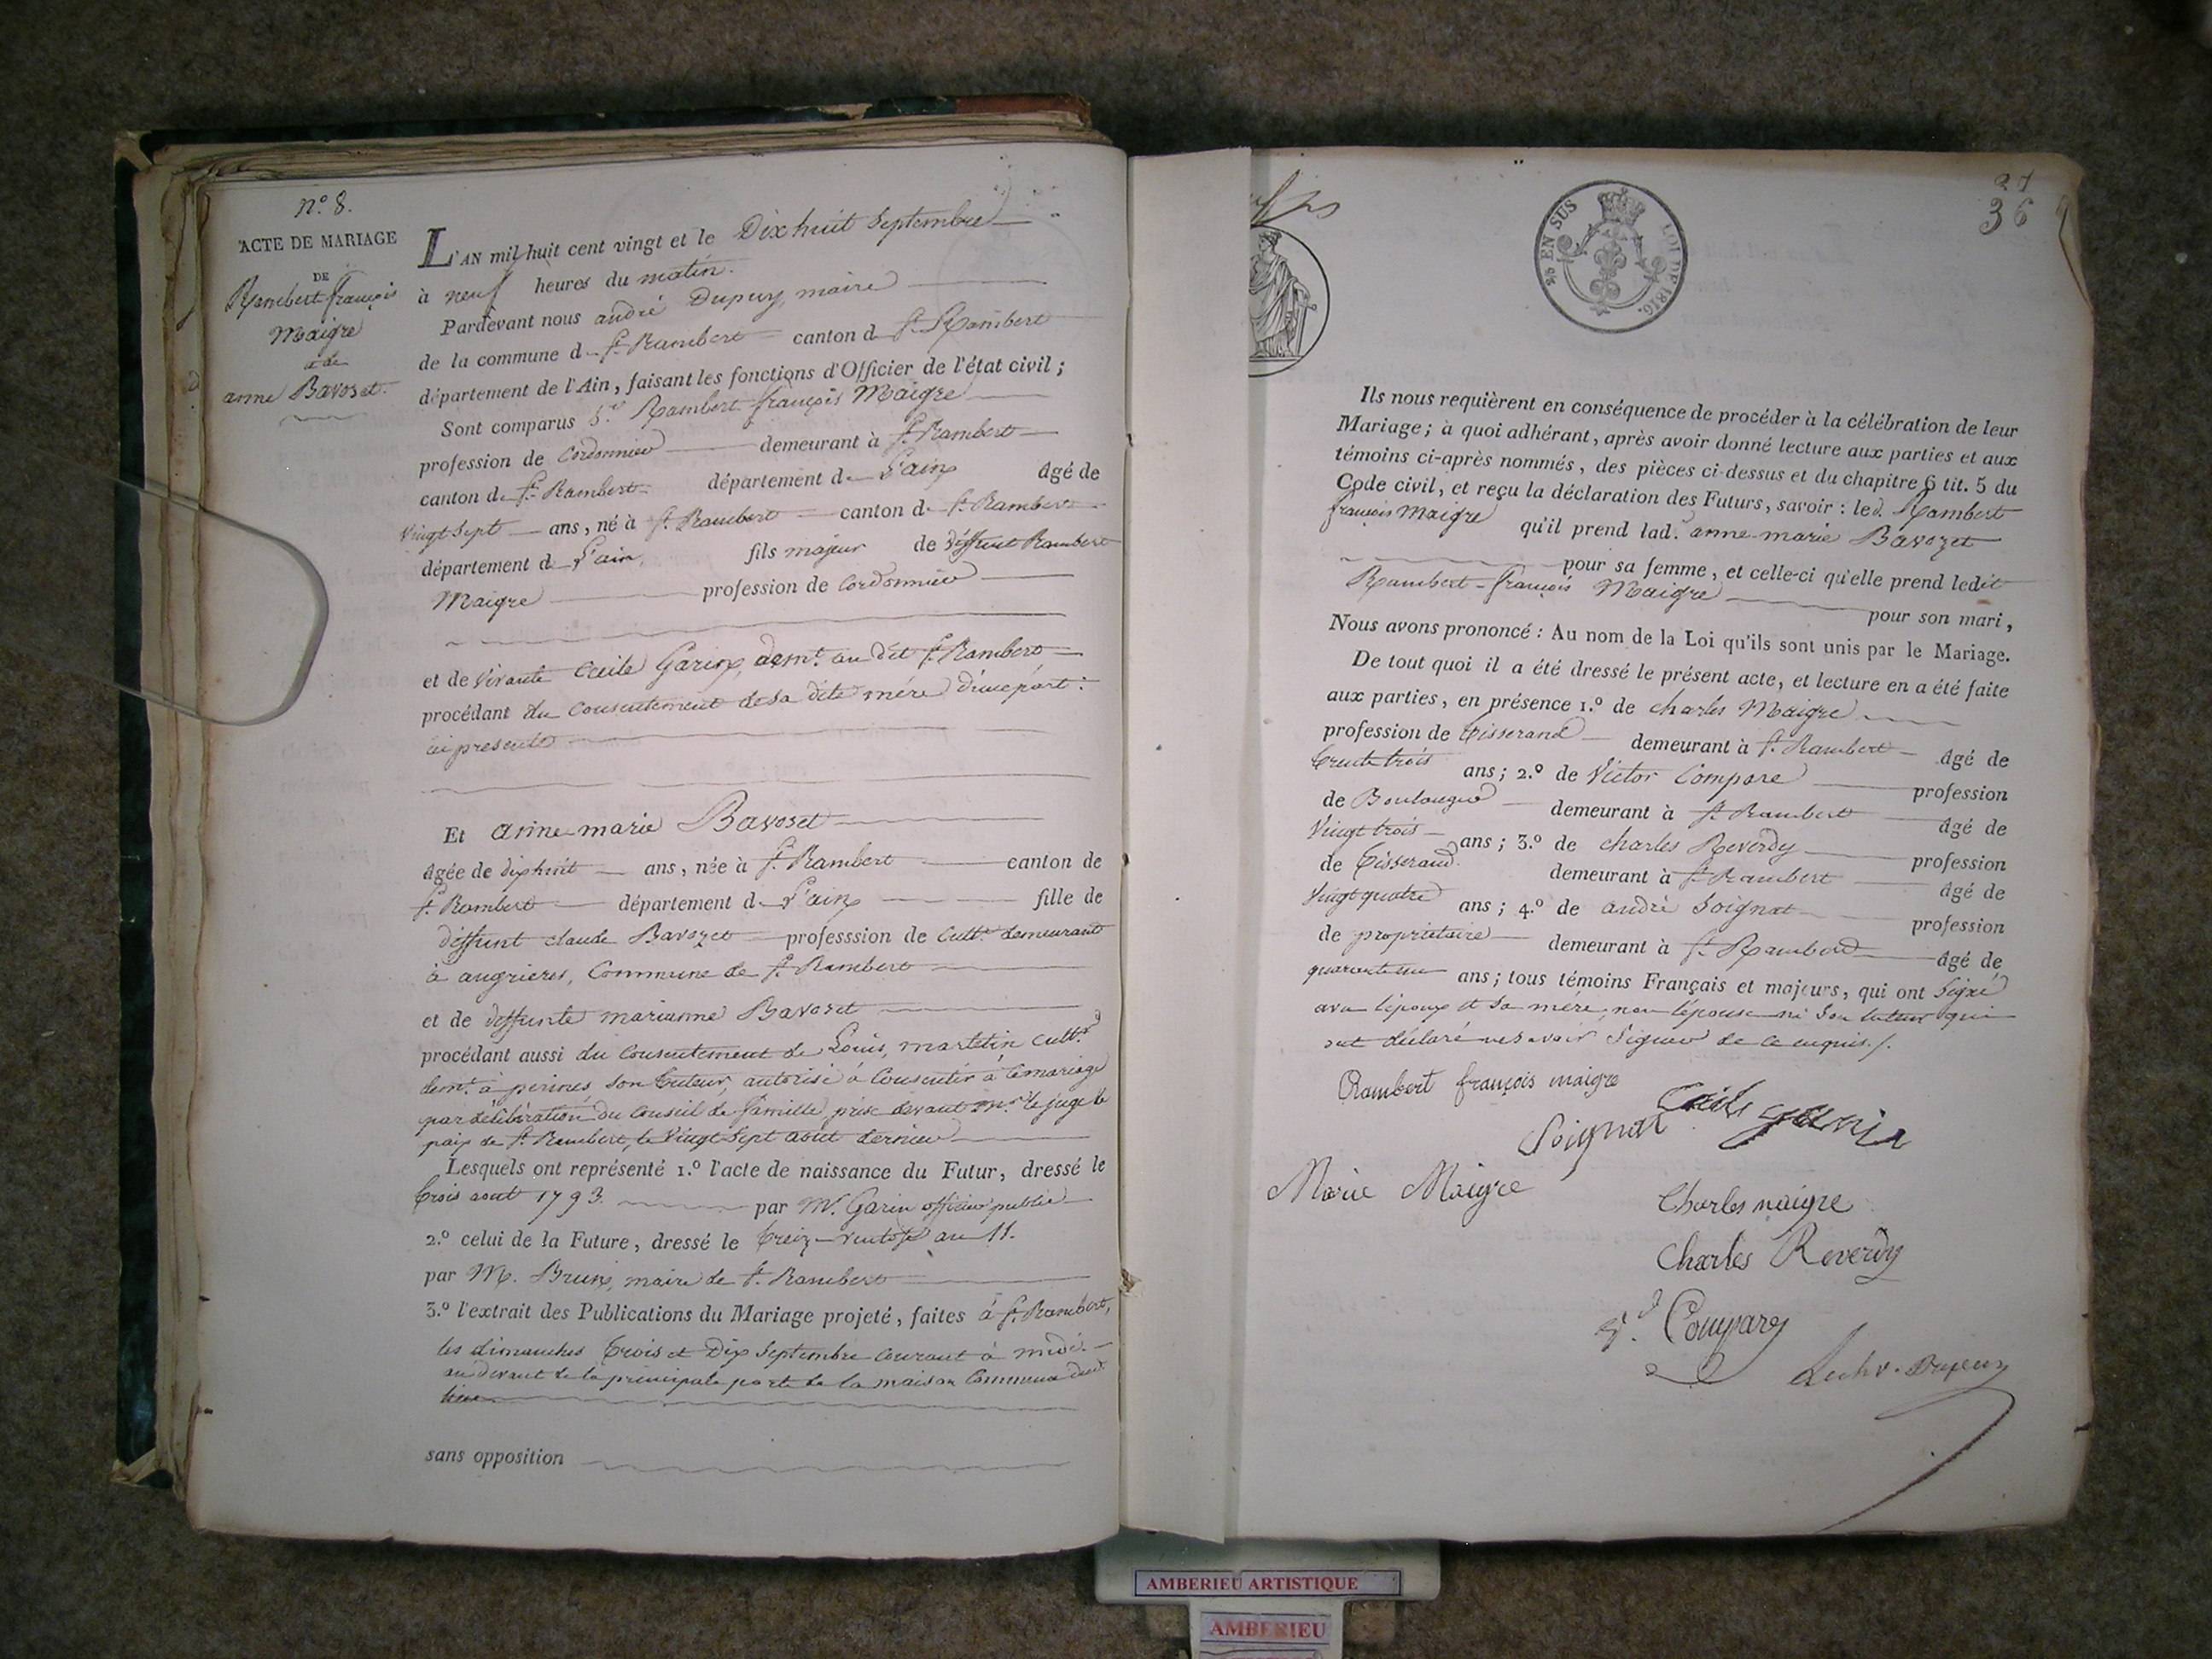 n.° 8.
ACTE DE MARIAGE
DE
Rambert françois
Maigre
et de
anne Bavoset.
L'AN mil huit cent vingt et le Dix huit Septembre
à neuf heures du matin.
Pardevant nous andré Dupuy, maire
de la commune d St. Rambert canton d St. Rambert
département de l'Ain, faisant les fonctions d'Officier de l'état civil ;
Sont comparus Sr. Rambert françois Maigre
profession de Cordonnier demeurant à St. Rambert
canton d St. Rambert département d L'ain âgé de
Vingt Sept ans, né à St. Rambert canton d St. Rambert
département d L'ain, fils majeur de deffunt Rambert
Maigre profession de Cordonnier
et de Vivante Cécile Garin, demt. au dit St. Rambert
procédant du Consentement de sa dite mère d'une part :
ici presente
Et anne-marie Bavoset
âgée de dixhuit ans, née à St. Rambert canton de
St. Rambert département d L'ain fille de
deffunt claude Bavozet professsion de Cultr. demeurant
à angrieres, Commune de St. Rambert
et de deffunte marianne Bavoset
procédant aussi du Consentement de Louis, martetin cultr.
demt. à Son tuteur, autorisé à Consentir à ce mariage
par déliberation du Conseil de famille, prise devant Mr. le juge de
paix de St. Rambert, le Vingt Sept aout dernier
Lesquels ont représenté 1.° l'acte de naissance du Futur, dressé le
trois aout 1793. par Mr. Garin officier public
2.° celui de la Future, dressé le treize ventose an 11.
par M. Brun, maire de St. Rambert
3.° l'extrait des Publications du Mariage projeté, faites à St. Rambert,
les dimanches trois et Dix Septembre Courant à midi.
au devant de la principale porte de la maison Commune dud.
lieu
sans opposition
37
36
25 EN SUS LOI DE 1816.
Ils nous requièrent en conséquence de procéder à la célébration de leur
Mariage ; à quoi adhérant, après avoir donné lecture aux parties et aux
témoins ci-après nommés, des pièces ci-dessus et du chapitre 6 tit. 5 du
Code civil, et reçu la déclaration des Futurs, savoir : led. Rambert
françois Maigre qu'il prend lad. anne-marie Bavozet
pour sa femme, et celle-ci qu'elle prend ledit
Rambert-françois Maigre pour son mari,
Nous avons prononcé : Au nom de la Loi qu'ils sont unis par le Mariage.
De tout quoi il a été dressé le présent acte, et lecture en a été faite
aux parties, en présence 1.° de charles Maigre
profession de tisserand demeurant à St. Rambert âgé de
trente trois ans ; 2.° de Victor Compare profession
de Boulanger demeurant à St. Rambert âgé de
Vingt trois ans ; 3.° de charles Reverdy profession
de tisserand. demeurant à St. Rambert âgé de
Vingt quatre ans ; 4.° de andré Soignat profession
de propriétaire demeurant à St. Rambert âgé de
quarante un ans ; tous témoins Français et majeurs, qui ont Signé
avec l'époux et sa mère, non l'épouse ni Son tuteur qui
ont déclaré ne savoir Signer de ce enquis ./.
Rambert françois maigre
Soignat Cécile garin
Marie Maigre Charles maigre
Charles Reverdy
Compare
Dupuy
AMBERIEU ARTISTIQUE
AMBERIEU